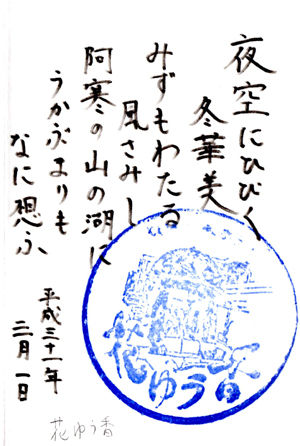 夜空にひびく
冬華美
みずもわたる
風さみし
阿寒の山の湖に
うかぶまりも
なに想ふ
平成三十一年
三月一日
花ゆう香
花ゆう香